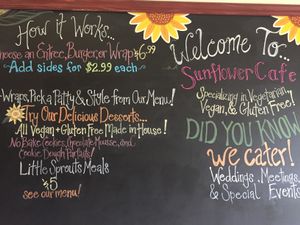 How it Works...
hoose an Entree, Burger, or Wrap $6.99
Add sides for $2.99 each
-Wraps, Pick a Patty & Style from Our Menu!
Try Our Delicious Desserts...
All Vegan + Gluten Free Made in House!
No Bake Cookies, Chocolate Mousse, and
Cookie Dough Parfaits!
Little Sprouts Meals
$5
see our menu!
Welcome To...
Sunflower Cafe
Specializing in Vegetarian,
Vegan, & Gluten Free!
DID YOU KNOW
we cater!
Weddings, Meetings,
& Special Events